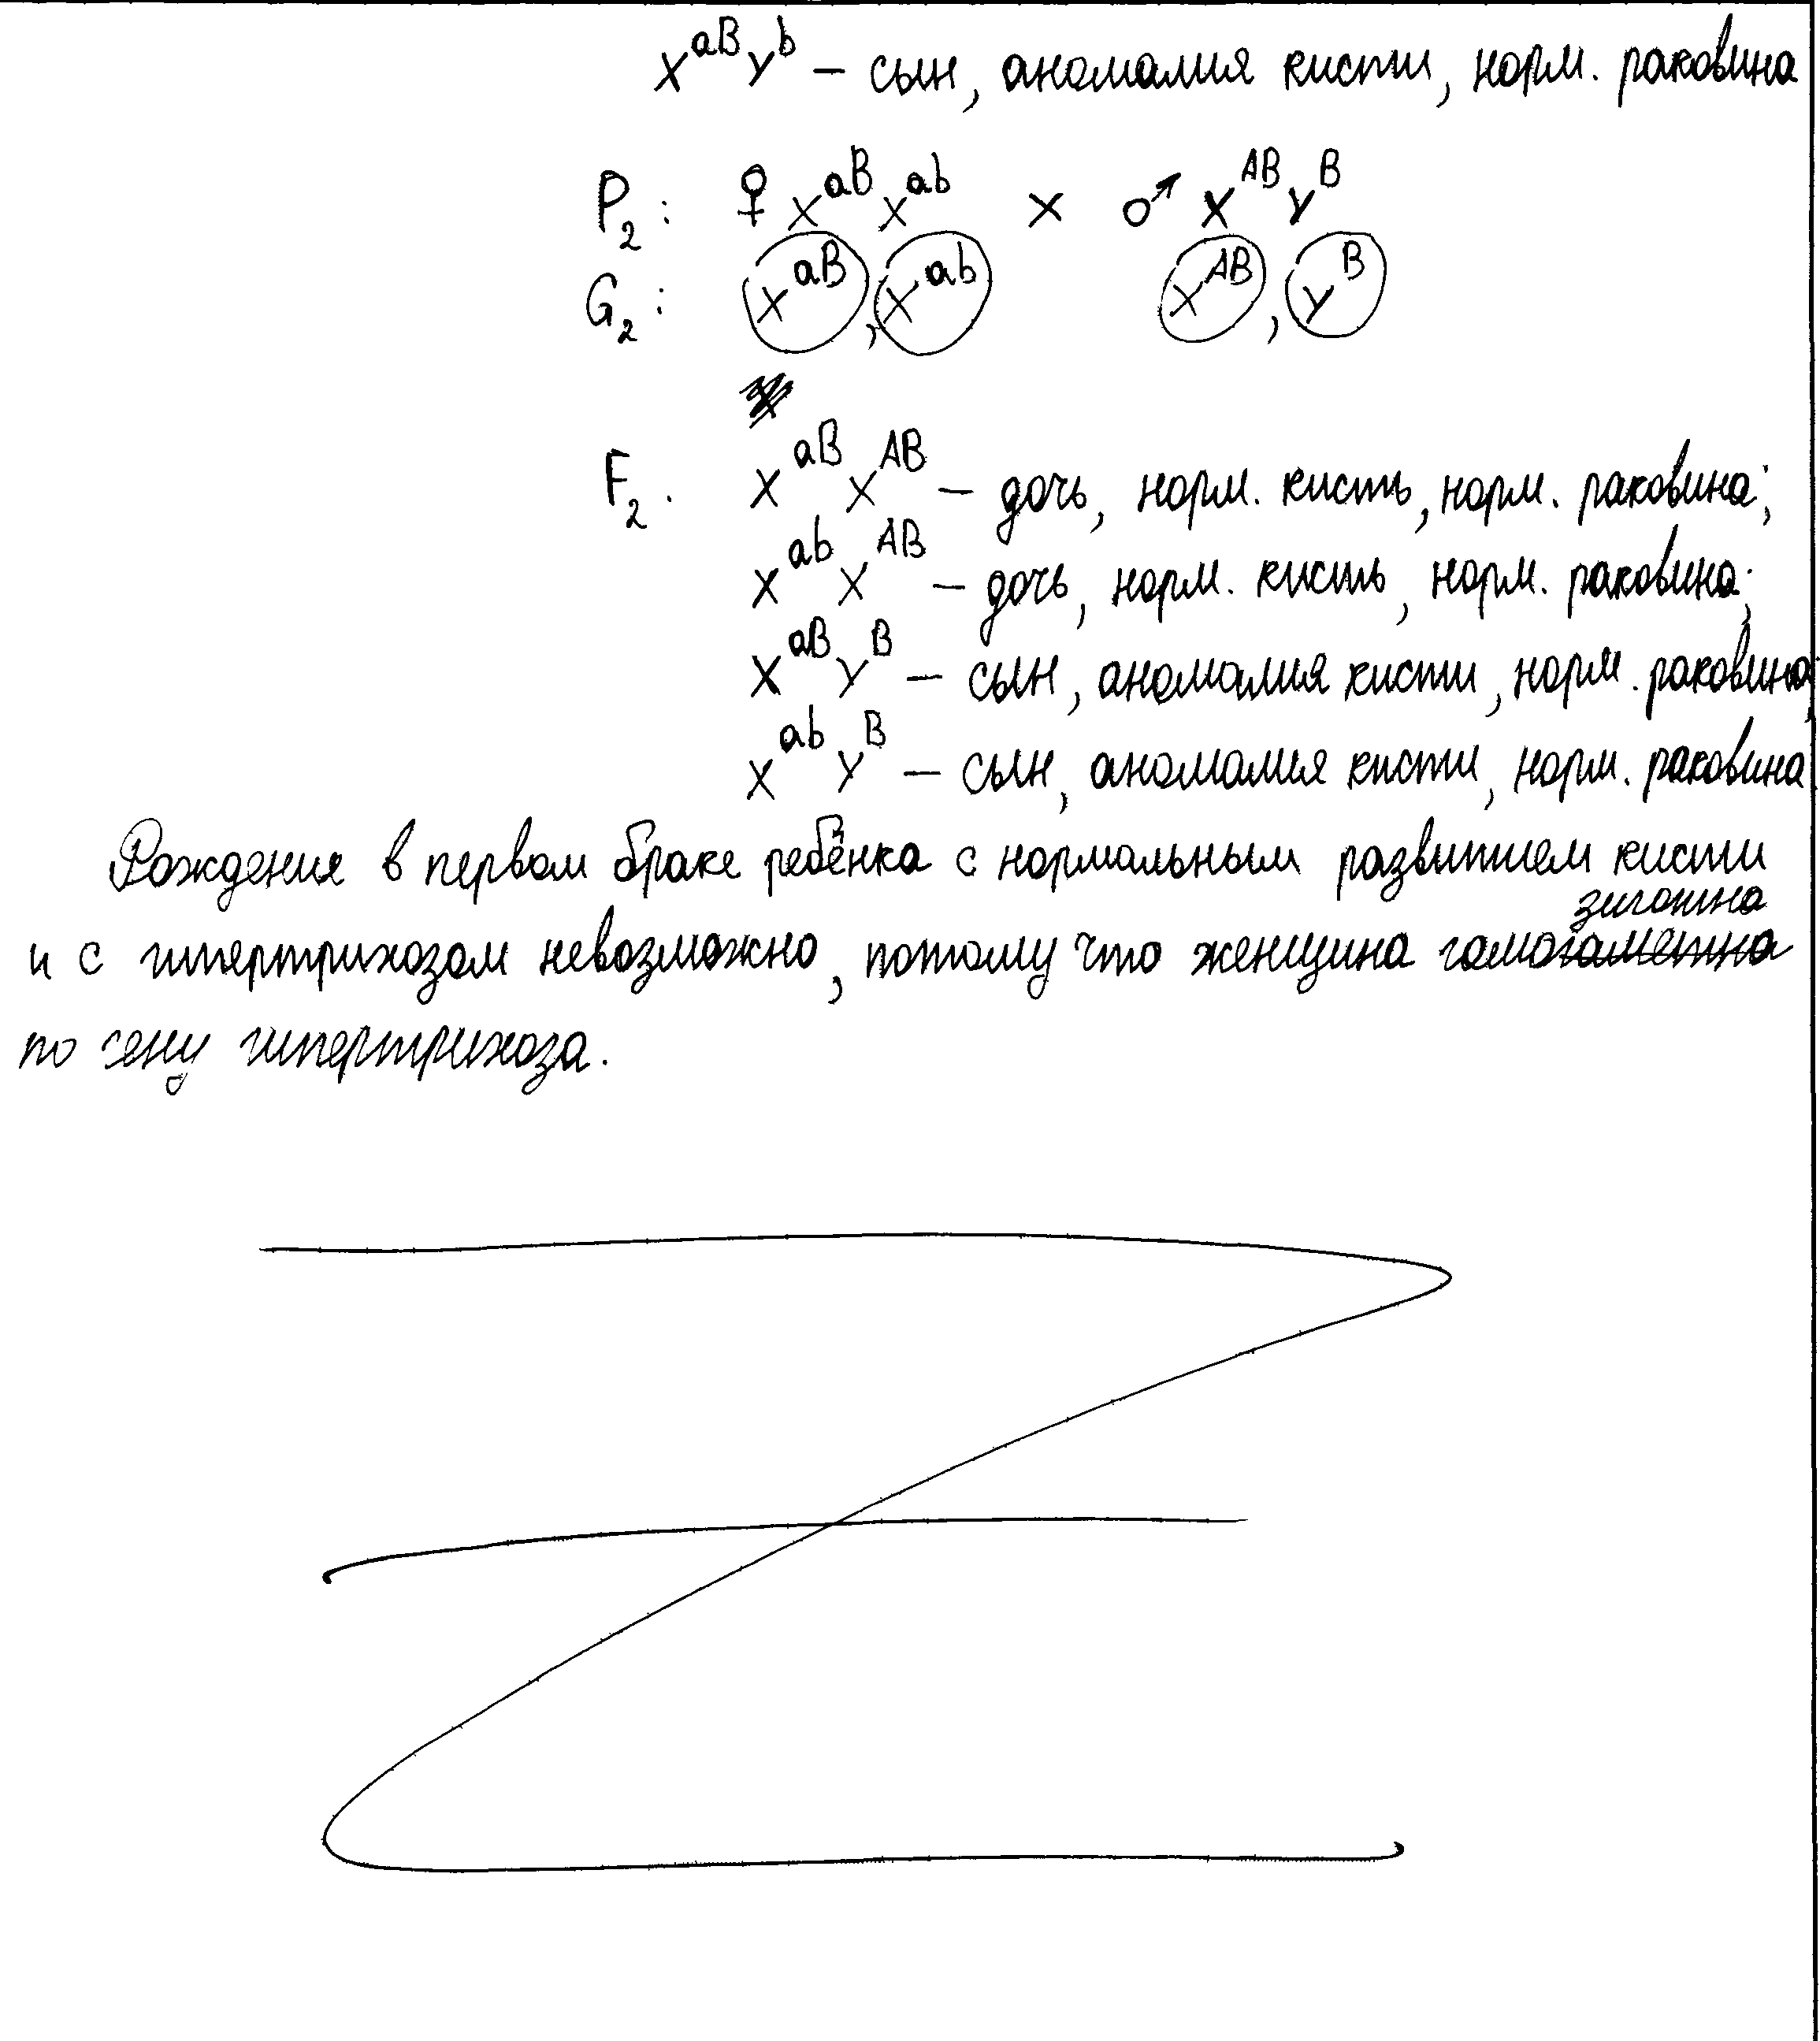 X^aB Y^b – сын, аномалия кисти, норм. раковина
P₂: ♀ X^aB X^ab × ♂ X^AB Y^B
G₂: X^aB, X^ab X^AB, Y^B
F₂. X^aB X^AB – дочь, норм. кисть, норм. раковина;
X^ab X^AB – дочь, норм. кисть, норм. раковина;
X^aB Y^B – сын, аномалия кисти, норм. раковина,
X^ab Y^B – сын, аномалия кисти, норм. раковина
Рождения в первом браке ребёнка с нормальным развитием кисти
зиготна
и с гипертрихозом невозможно, потому что женщина гомогаметна
по гену гипертрихоза.